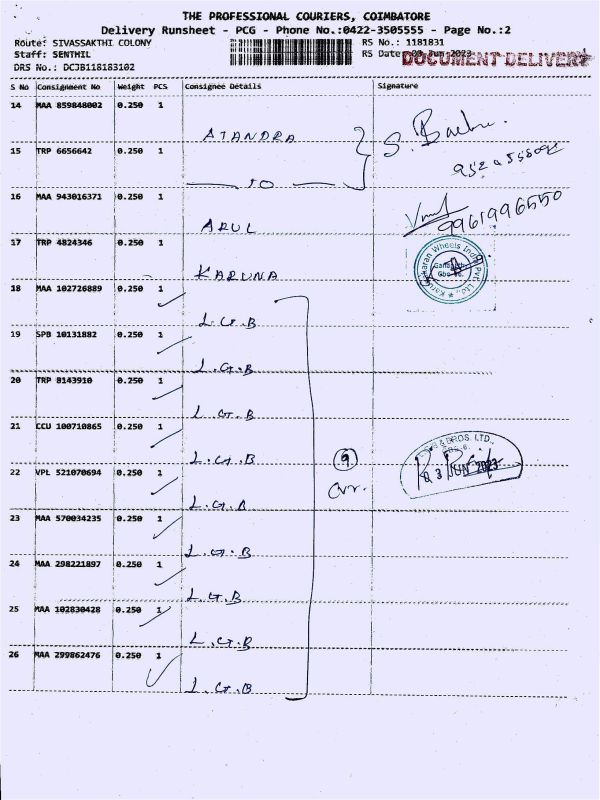 THE PROFESSIONAL COURIERS, COIMBATORE
Delivery Runsheet - PCG - Phone No.:0422-3505555 - Page No.:2
Route: SIVASSAKTHI COLONY RS No.: 1181831
Staff: SENTHIL RS Date: 03 Jun 2023 DOCUMENT DELIVERY
DRS No.: DCJB118183102
S No Consignment No Weight PCS Consignee Details Signature
14 MAA 859848002 0.250 1
15 TRP 6656642 0.250 1
TO
16 MAA 943016371 0.250 1
ARUL
9961996550
17 TRP 4824346 0.250 1
KARUNA
18 MAA 102726889 0.250 1
L.G.B
19 SPB 10131882 0.250 1
L.G.B
20 TRP 8143910 0.250 1
L.G.B
21 CCU 100710865 0.250 1
L.G.B
& BROS. LTD.,
22 VPL 521070694 0.250 1
9
L.G.B
03 JUN 2023
23 MAA 570034235 0.250 1
L.G.B
24 MAA 298221897 0.250 1
L.G.B
25 MAA 102830428 0.250 1
L.G.B
26 MAA 299862476 0.250 1
L.G.B